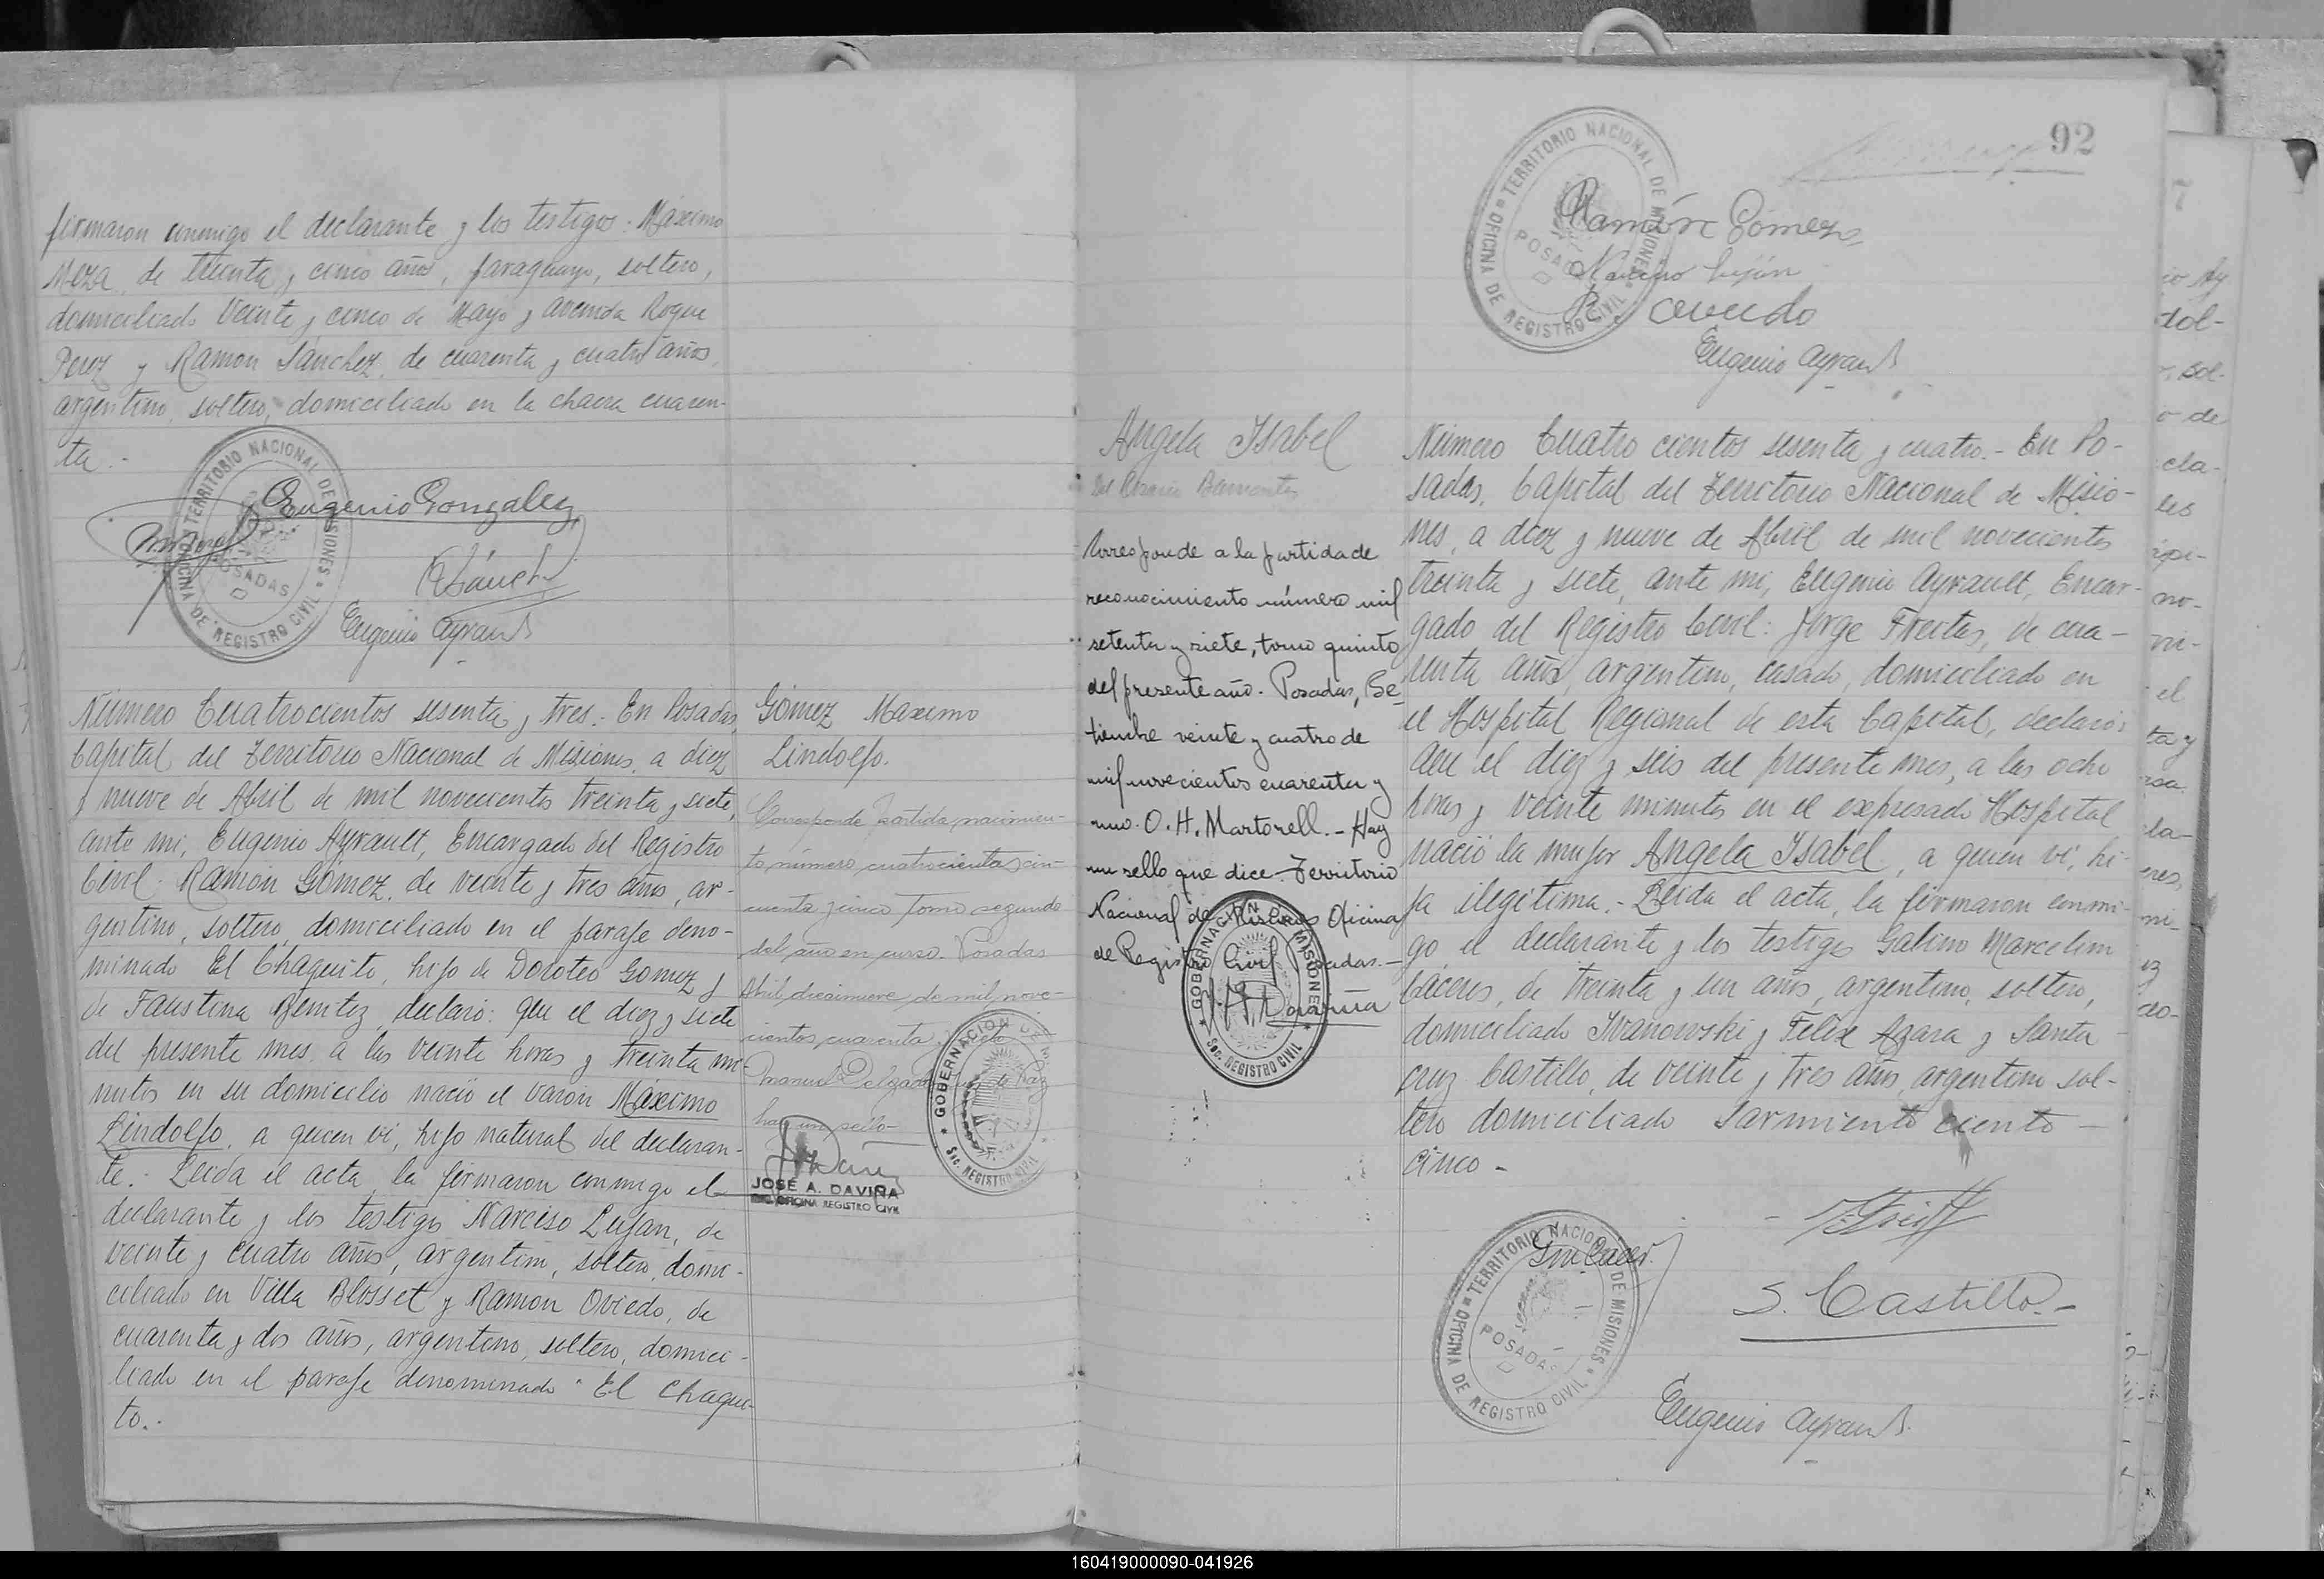 firmaron conmigo el declarante y los testigos: Máximo
Meza, de treinta y cinco años, paraguayo, soltero,
domiciliado Veinte y cinco de Mayo y avenida Roque
Perez y Ramon Sánchez, de cuarenta y cuatro años,
argentino, soltero, domiciliado en la chacra cuaren-
ta.-
OFICINA DE REGISTRO CIVIL TERRITORIO NACIONAL DE MISIONES
POSADAS
Eugenio Gonzalez
RSánchez
Eugenio Ayrault
Número Cuatrocientos sesenta y tres.- En Posadas,
Capital del Territorio Nacional de Misiones, a diez
y nueve de Abril de mil novecientos treinta y siete,
ante mi, Eugenio Ayrault, Encargado del Registro
Civil: Ramón Gómez, de veinte y tres años, ar-
gentino, soltero, domiciliado en el paraje deno-
minado El Chaquito, hijo de Doroteo Gomez y
de Faustina Benitez, declaró: que el diez y siete
del presente mes, a las veinte horas y treinta mi-
nutos en su domicilio nació el varón Máximo
Lindolfo, a quien vi, hijo natural del declaran-
te.- Leida el acta, la firmaron conmigo el
declarante y los testigos Narciso Lujan, de
veinte y cuatro años, argentino, soltero, domi-
ciliado en Villa Blosset y Ramon Oviedo, de
cuarenta y dos años, argentino, soltero, domici-
liado en el paraje denominado "El Chaqui-
to.-
Gómez Maximo
Lindolfo.
Corresponde partida nacimien-
to número cuatrocientas cin-
cuenta y cinco Tomo segundo
del año en curso. Posadas
Abril diecinueve de mil nove-
cientos cuarenta
Manuel Delgado Juez de Paz
hay un sello
GOBERNACION DE MISIONES
Sec. REGISTRO CIVIL
JOSÉ A. DAVIÑA
OFICINA REGISTRO CIVIL
92
OFICINA DE REGISTRO CIVIL TERRITORIO NACIONAL DE MISIONES
POSADAS
Ramón Gomez
Narciso Luján
R Oviedo
Eugenio Ayrault
Angela Isabel
Del Rosario Bamonte
Corresponde a la partida de
reconocimiento número mil
setenta y siete, tomo quinto
del presente año. Posadas, Se-
tiembre veinte y cuatro de
mil novecientos cuarenta y
uno. O. H. Martorell. - Hay
un sello que dice: Territorio
Nacional de Misiones Oficina
de Registro Civil Posadas.-
GOBERNACION MISIONES
Sec. REGISTRO CIVIL
Daviña
Número Cuatro cientos sesenta y cuatro.- En Po-
sadas, Capital del Territorio Nacional de Misio-
nes, a diez y nueve de Abril de mil novecientos
treinta y siete, ante mi, Eugenio Ayrault, Encar-
gado del Registro Civil: Jorge Freitas, de cua-
renta años, argentino, casado, domiciliado en
el Hospital Regional de esta Capital, declaró:
que el diez y seis del presente mes, a las ocho
horas y veinte minutos en el expresado Hospital
nació la mujer Angela Isabel, a quien vi, hi-
ja ilegitima.- Leida el acta, la firmaron conmi-
go el declarante y los testigos Galino Marcelino
Cáceres, de treinta y un años, argentino, soltero,
domiciliado Ivanowski y Felix Azara y Santa
Cruz Castillo, de veinte y tres años, argentino sol-
tero domiciliado Sarmiento ciento
cinco -
OFICINA DE REGISTRO CIVIL TERRITORIO NACIONAL DE MISIONES
POSADAS
S. Castillo.-
Eugenio Ayrault
160419000090-041926